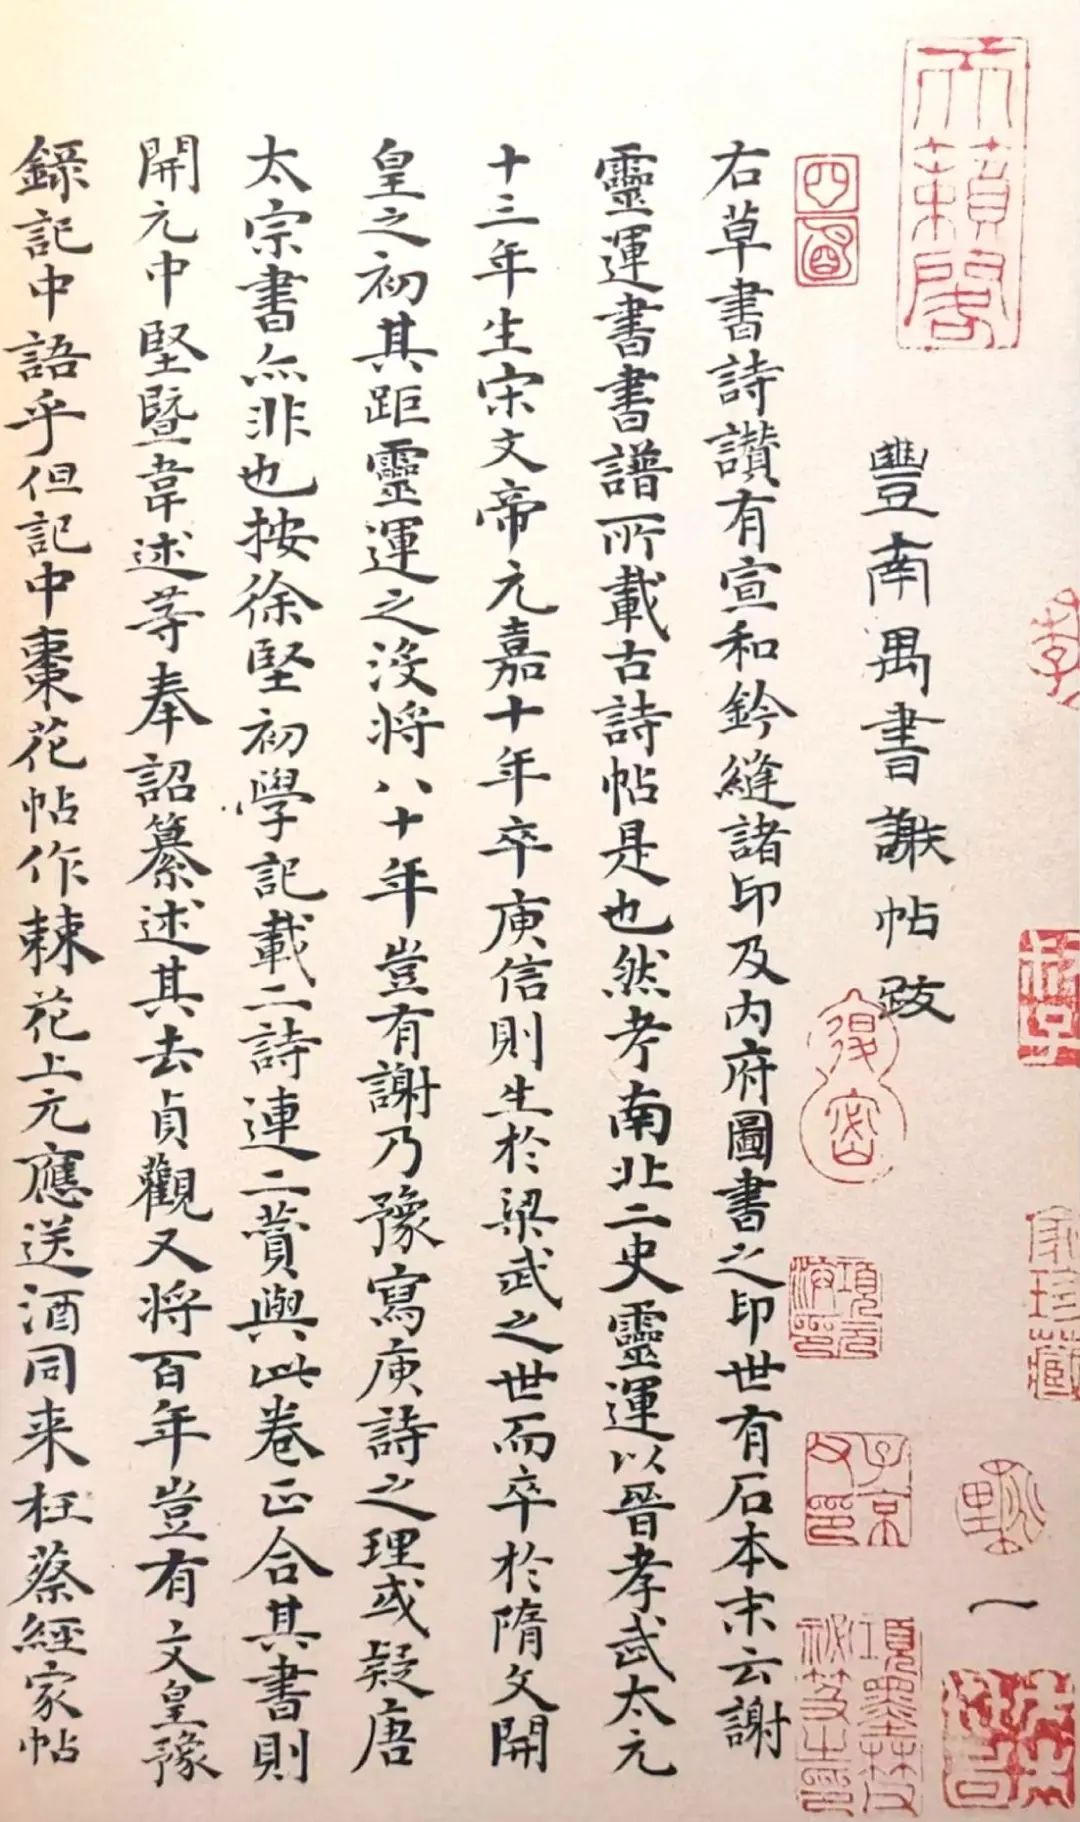 天籟閣
豐南禺書謝帖跋
項墨林父祕笈之印
子京父印
項元汴印
一
右草書詩讃有宣和鈐縫諸印及內府圖書之印世有石本末云謝
靈運書書譜所載古詩帖是也然考南北二史靈運以晉孝武太元
十三年生宋文帝元嘉十年卒庾信則生於梁武之世而卒於隋文開
皇之初其距靈運之沒將八十年豈有謝乃豫寫庾詩之理或疑唐
太宗書亦非也按徐堅初學記載二詩連二賛與此卷正合其書則
開元中堅暨韋述等奉詔纂述其去貞觀又將百年豈有文皇豫
錄記中語乎但記中棗花帖作棘花上元應送酒同来枉蔡經家帖